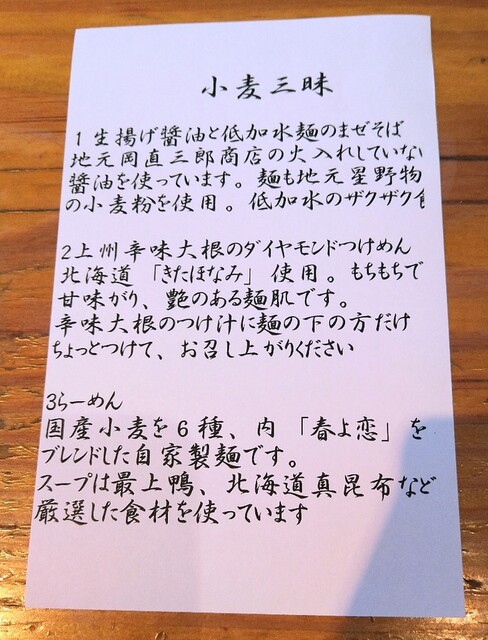 小麦三昧
1生揚げ醬油と低加水麺のまぜそば
地元岡直三郎商店の火入れしていな
醬油を使っています。麺も地元星野物
の小麦粉を使用。低加水のザクザク食
2上州辛味大根のダイヤモンドつけめん
北海道「きたほなみ」使用。もちもちで
甘味がり、艶のある麺肌です。
辛味大根のつけ汁に麺の下の方だけ
ちょっとつけて、お召し上がりください
3らーめん
国産小麦を6種、内「春よ恋」を
ブレンドした自家製麺です。
スープは最上鴨、北海道真昆布など
厳選した食材を使っています